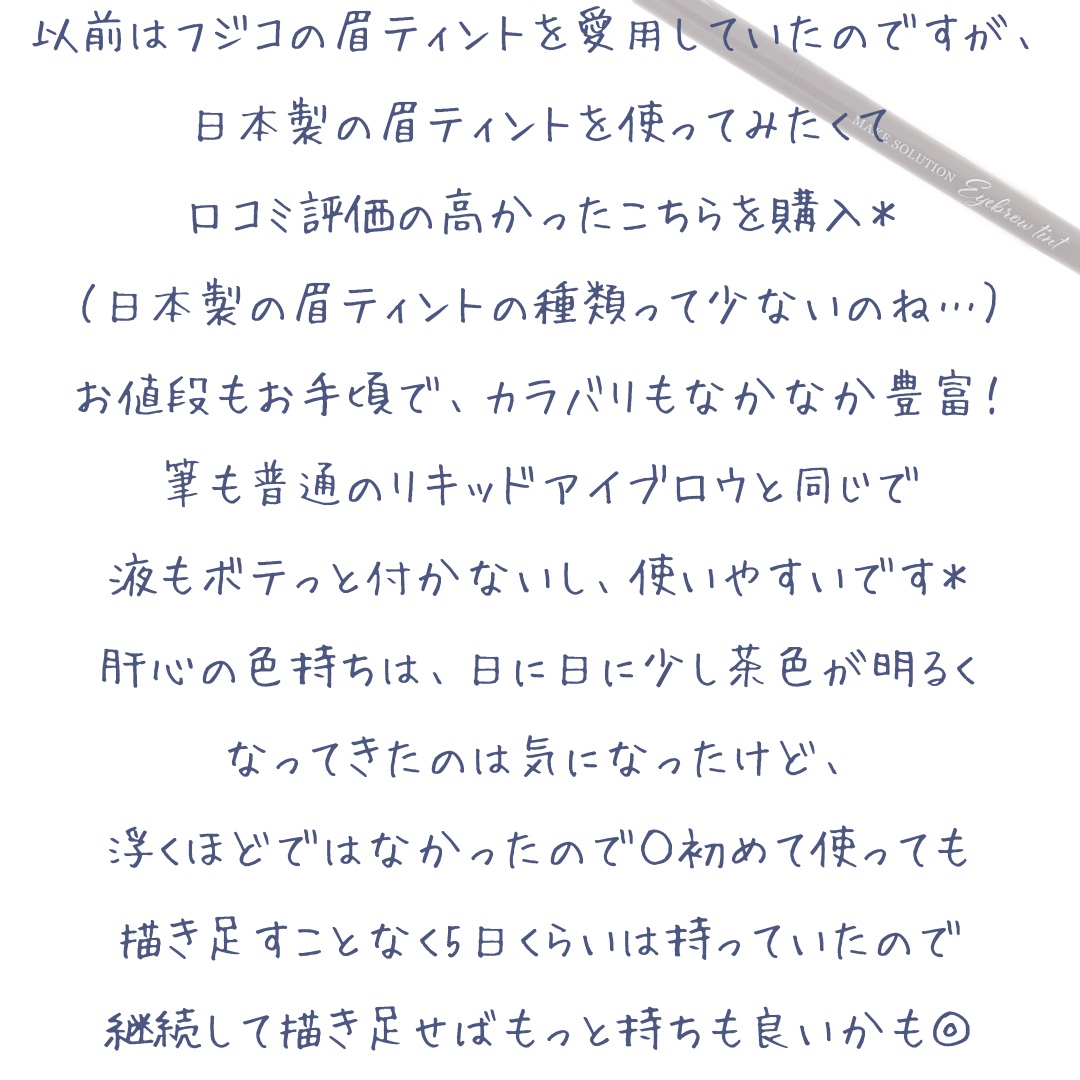 以前はフジコの眉ティントを愛用していたのですが、
日本製の眉ティントを使ってみたくて
口コミ評価の高かったこちらを購入*
(日本製の眉ティントの種類って少ないのね…)
お値段もお手頃で、カラバリもなかなか豊富!
筆も普通のリキッドアイブロウと同じで
液もボテっと付かないし、使いやすいです*
肝心の色持ちは、日に日に少し茶色が明るく
なってきたのは気になったけど、
浮くほどではなかったので〇初めて使っても
描き足すことなく5日くらいは持っていたので
継続して描き足せばもっと持ちも良いかも◎
MAKE SOLUTION Eyebrow tint